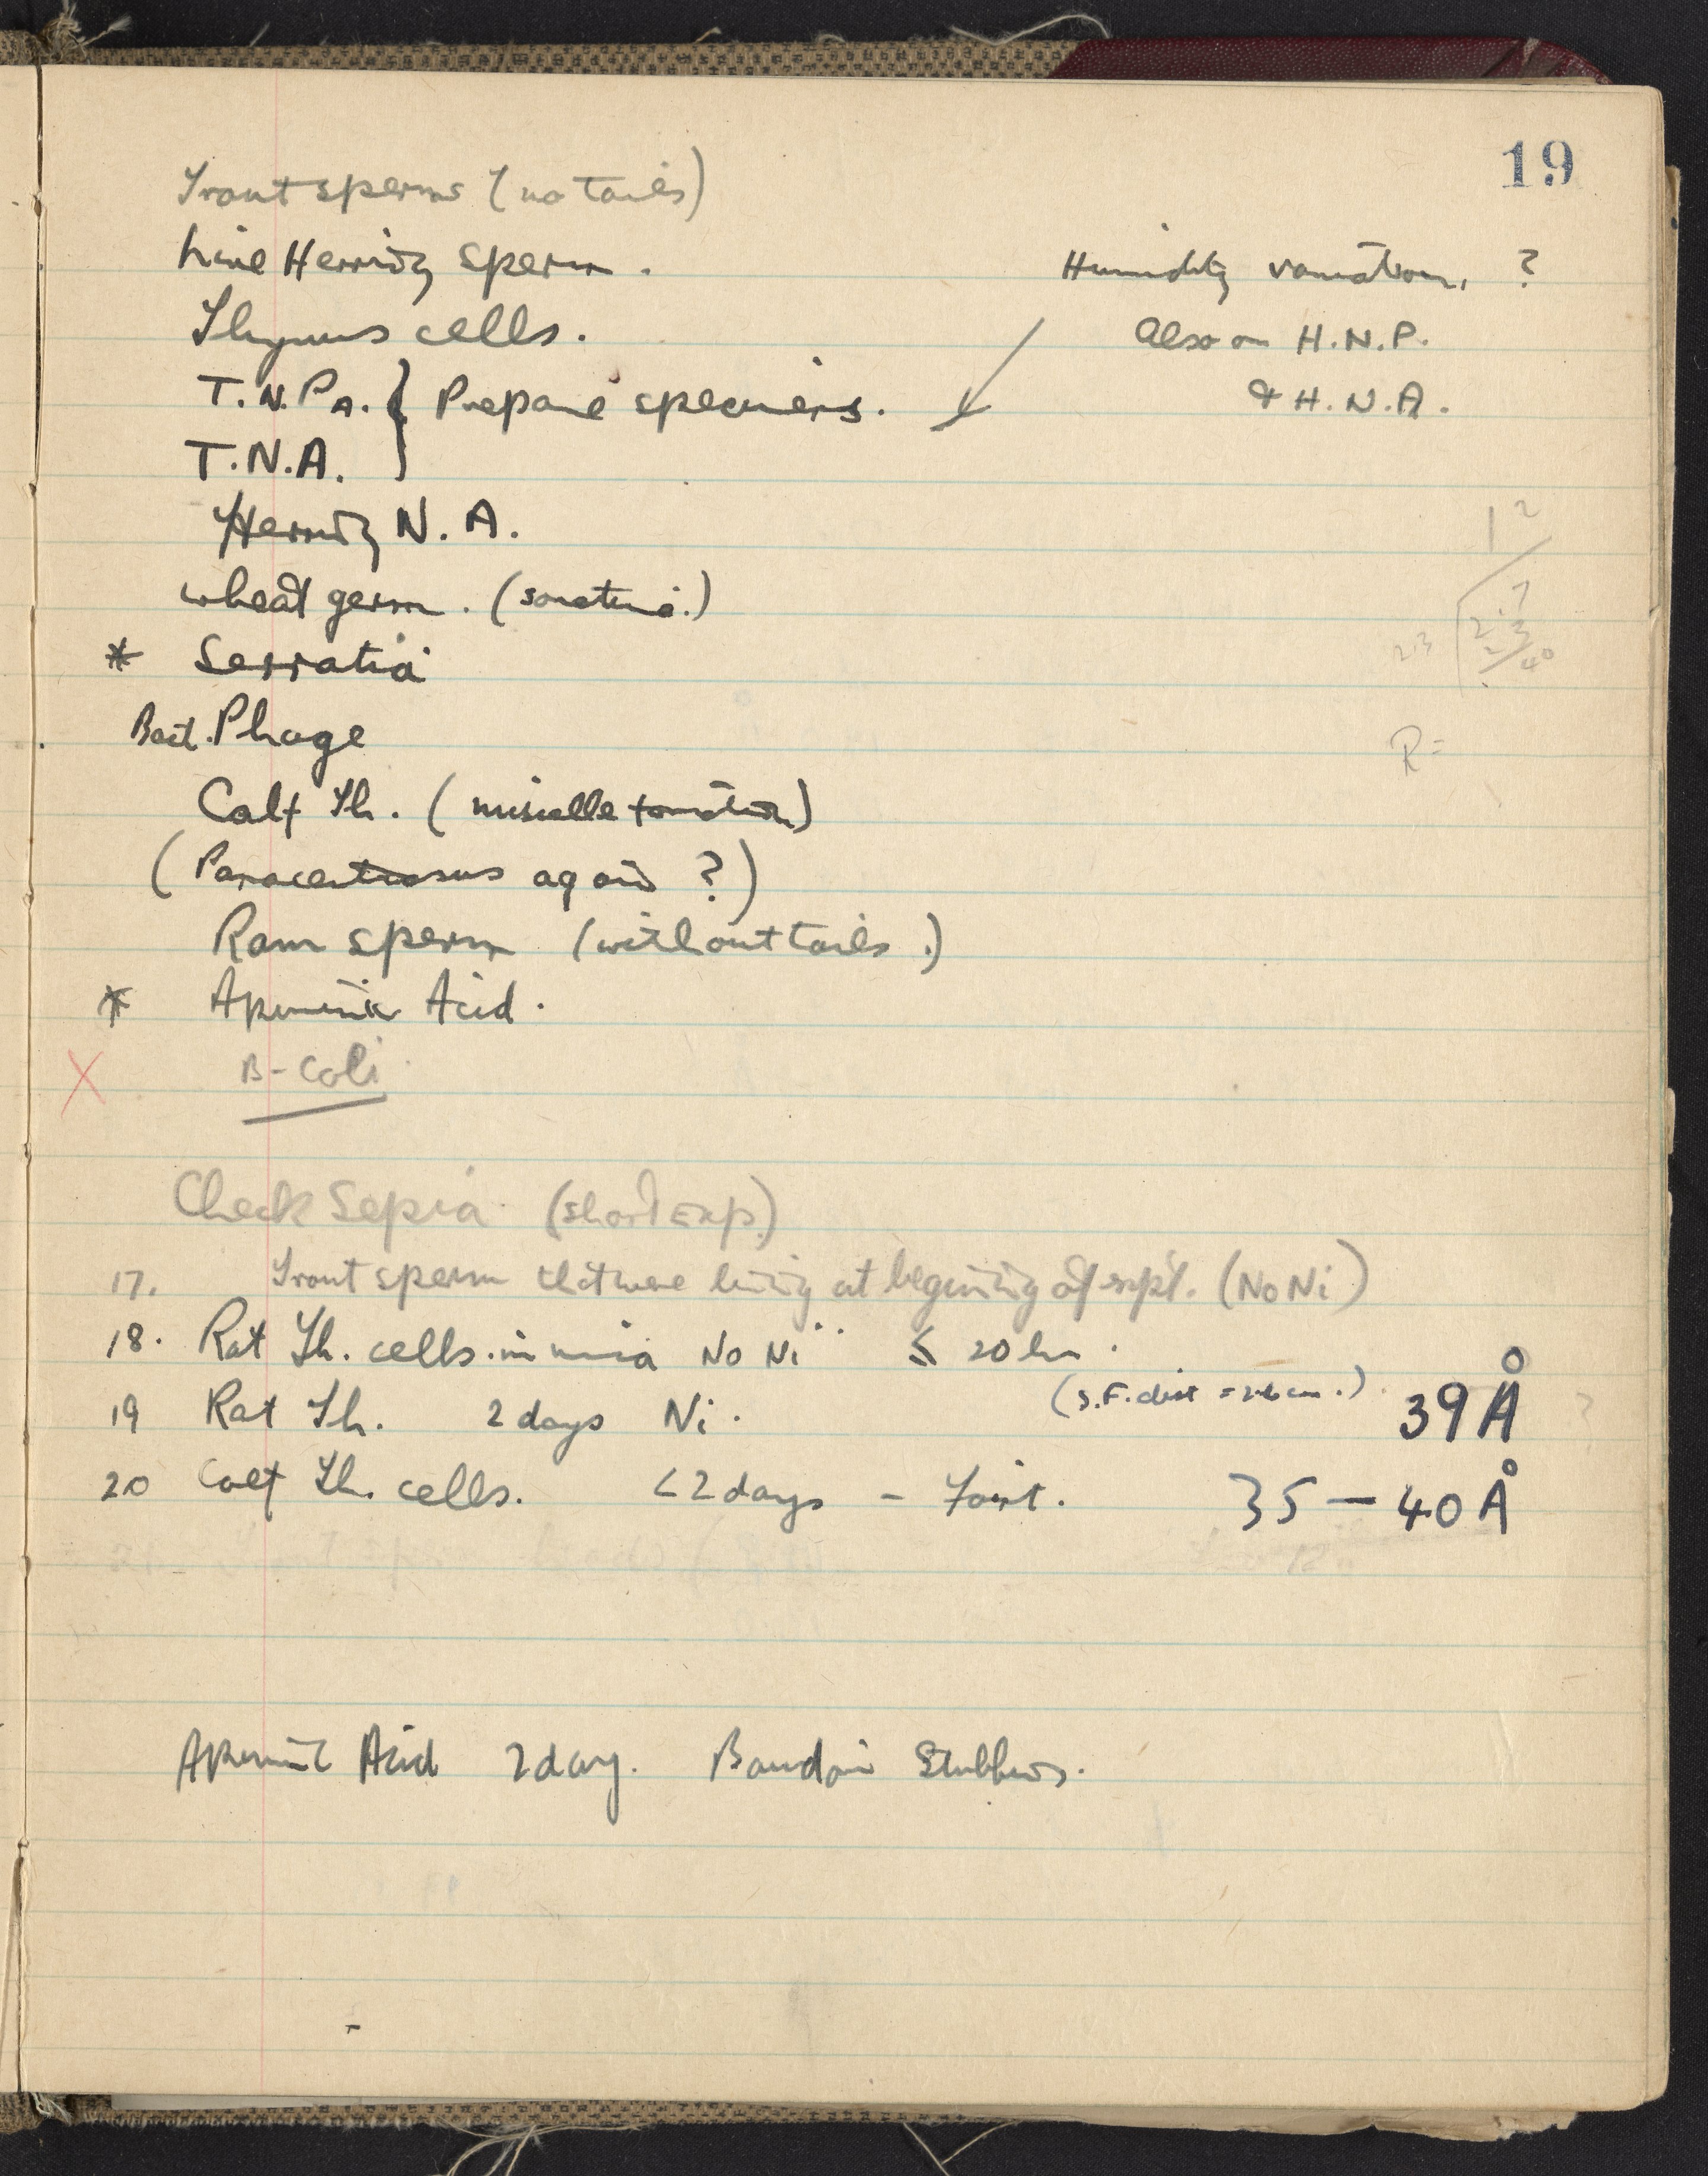 19
Trout sperms (no tails)
Live Herring sperm.
Humidity variation, ?
Thymus cells.
Also on H.N.P.
& H.N.A.
T.N.PA. } Prepare specimens.
T.N.A.
Herring N.A.
1 2
wheat germ.
2.3
40
* Serratia
Bact. Phage
R=
Calf Th. (micelle formation)
(Paracentrosus again ?)
Ram sperm (without tails.)
* Apurinic Acid.
X B-Coli
Check Sepia (short Exp.)
17. Trout sperm that were living at beginning of expt. (No Ni)
18. Rat Th. cells. in No Ni ≤ 20 hr.
19 Rat Th. 2 days Ni. (S.F. dist = cm.) 39 Å ?
20 Calf Th. cells. < 2 days - Faint. 35 — 40 Å
Apurinic Acid 2 day. Baudoin Stubbers.